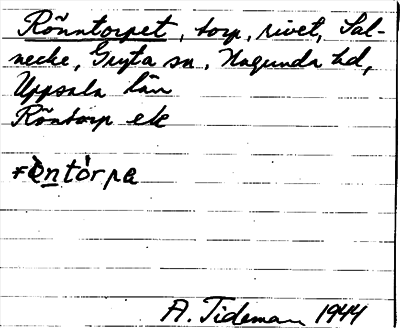 Rönntorpet, torp, rivet, Sal-
necke, Gryta sn, Hagunda hd,
Uppsala län
Röntorp ek
òntórpa
A. Tideman 1944